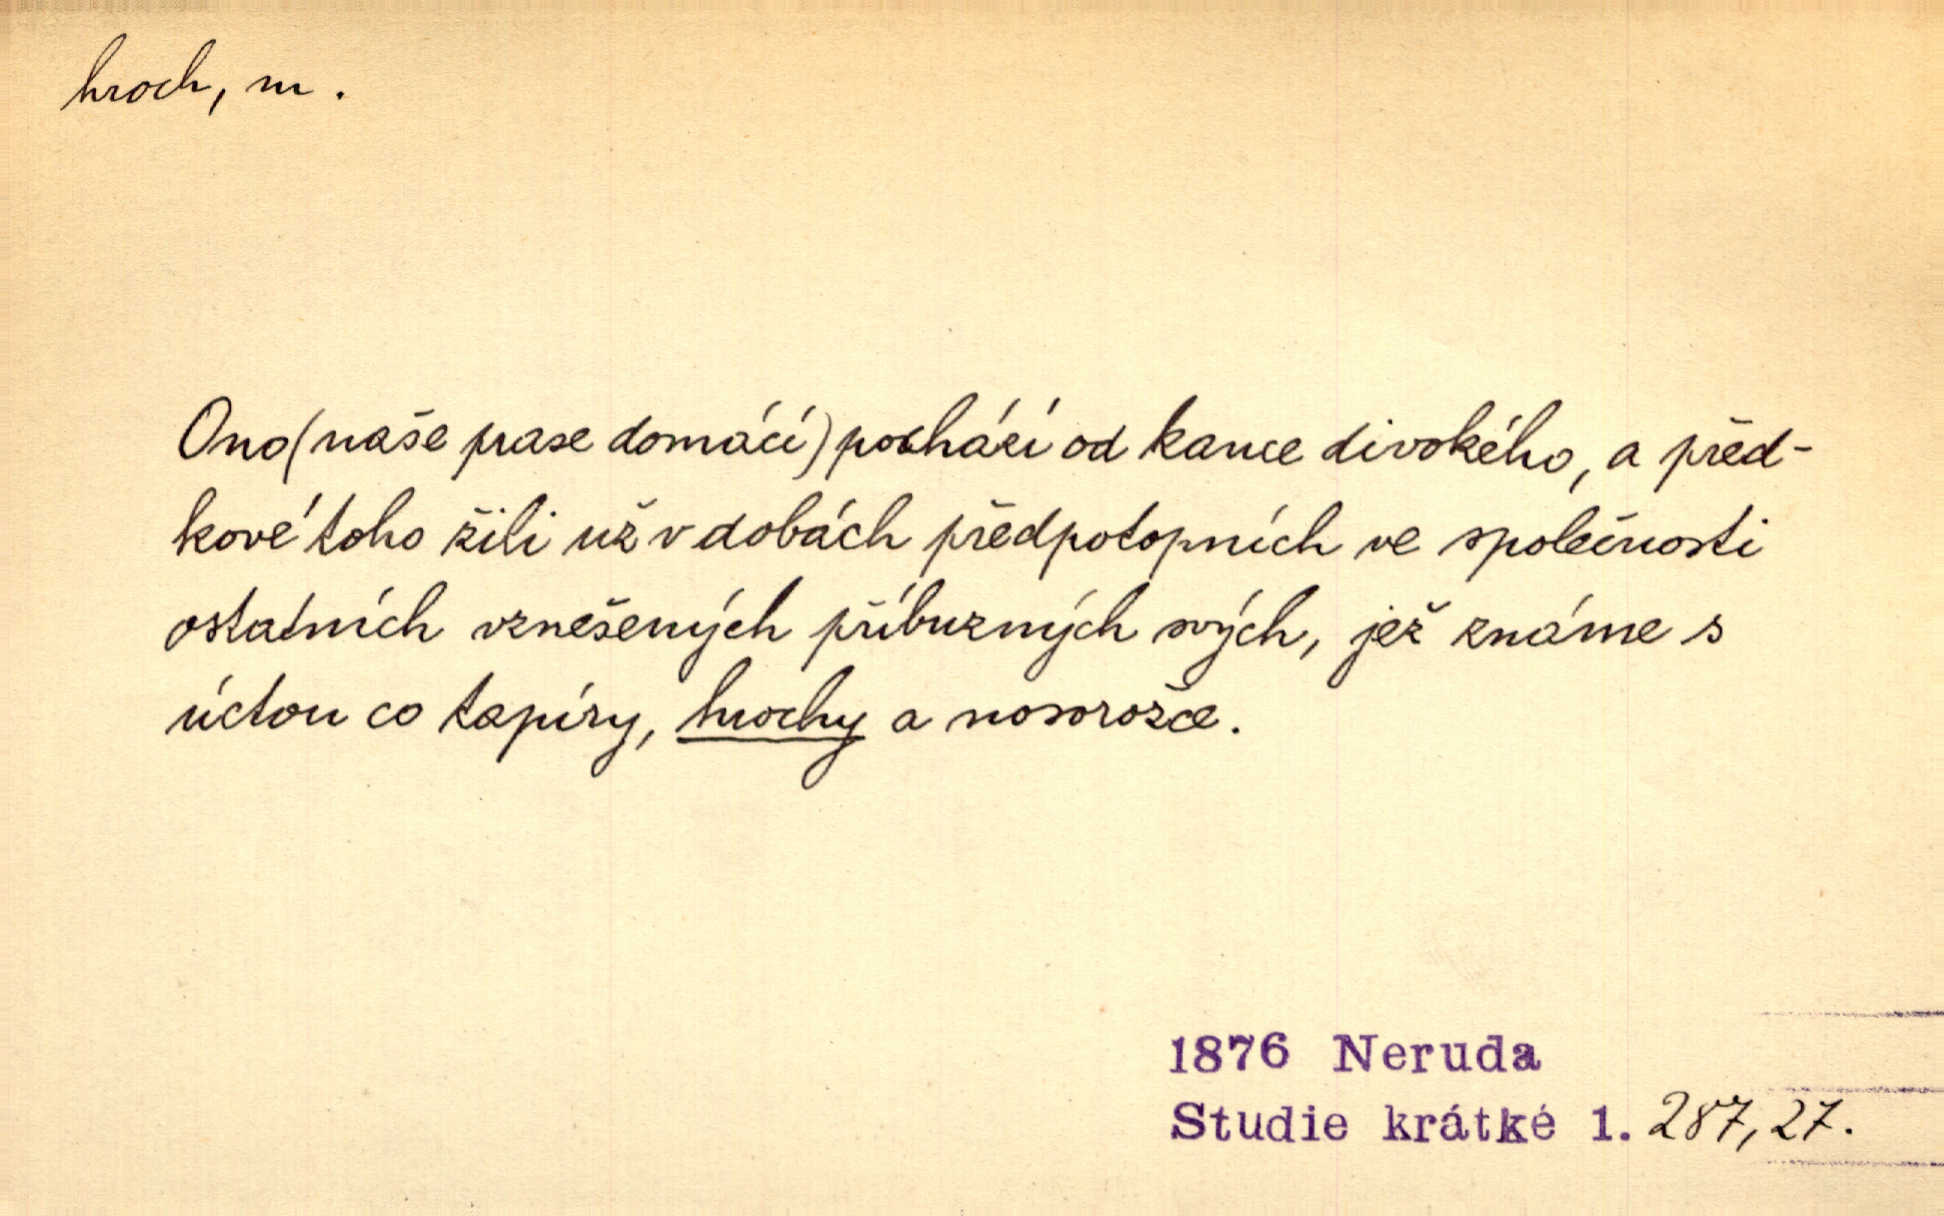 hroch, m.
Ono (naše prase domácí) pochází od kance divokého, a před-
kové toho žili už v dobách předpotopních ve společnosti
ostatních vznešených příbuzných svých, jež známe s
úctou co tapíry, hrochy a nosorožce.
1876 Neruda
Studie krátké 1. 287, 27.